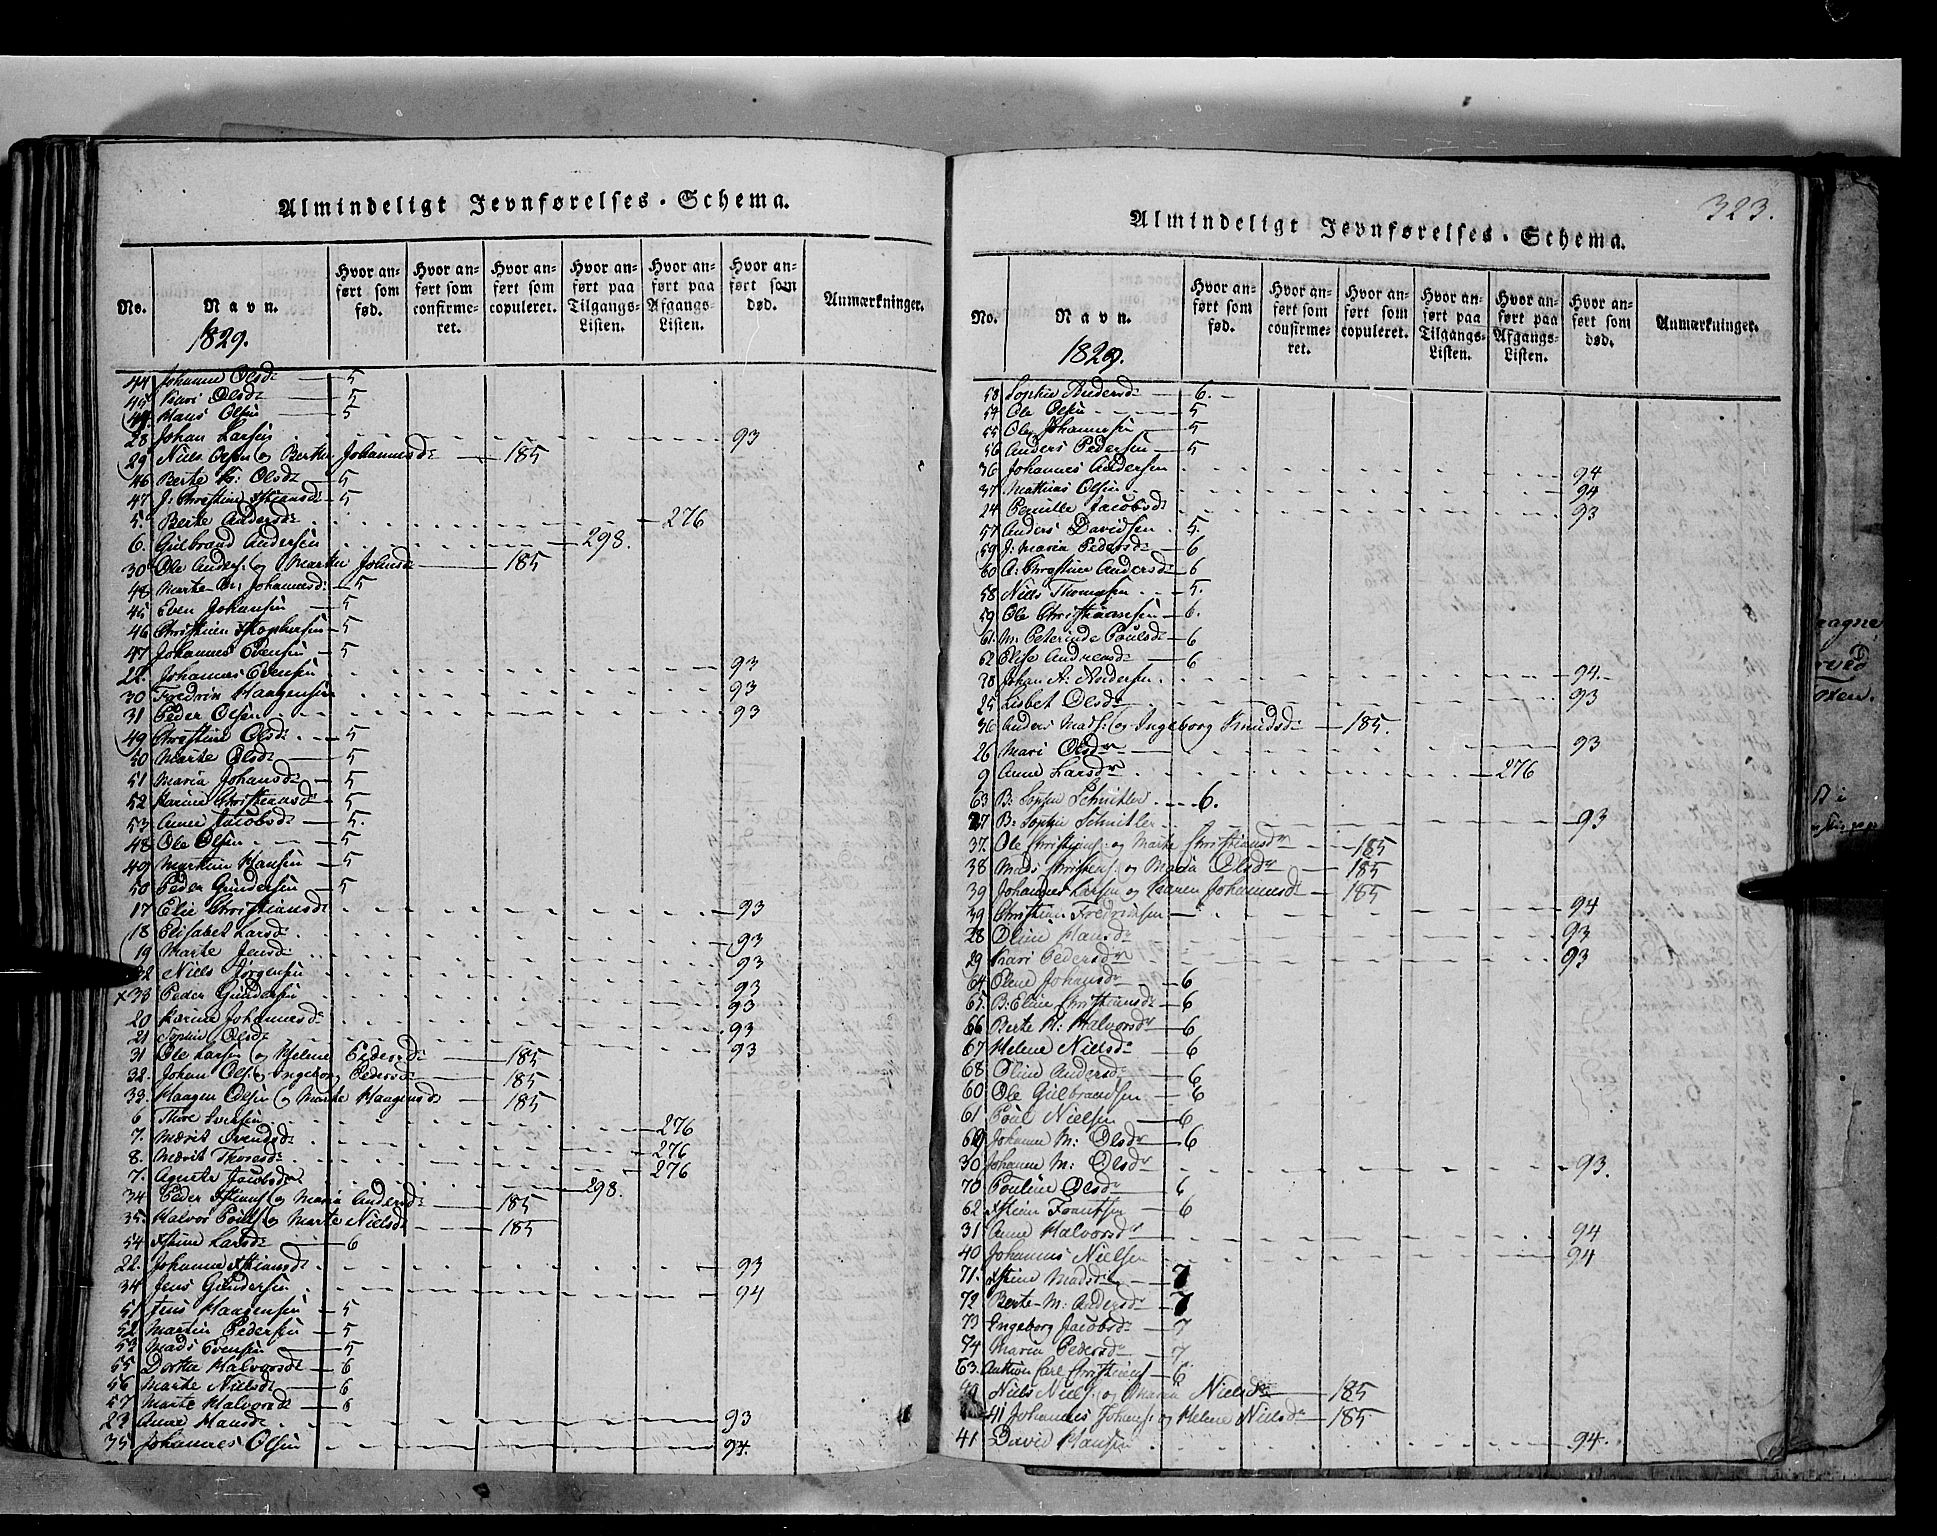 Almindeligt Jevnførelses-Schema.
No. Navn. Hvor anført som fød. Hvor anført som confirmeret. Hvor anført som copuleret. Hvor anført paa Tilgangs-Listen. Hvor anført paa Afgangs-Listen. Hvor anført som død. Anmærkninger.
1829.
44 Johanne Olsdr 5
45 Kari Olsdr 5
44. Hans Olsen 5
28 Johan Larsen 93
29 Niels Olsen og Berthe Johannesdr 185
46 Berte K: Olsdr 5
47 J: Christine Xstiansdr 5
5. Berte Andersdr 276
6. Gulbrand Andersen 298.
30 Ole Anders: og Marthe Johnsdr 185
48 Marte M: Johannesdr 5
45 Even Johansen 5
46 Christian Xstophersen 5
47 Johannes Evensen 5
22. Johannes Evensen 93
30 Fredrik Haagensen 93
31 Peder Olsen 93
49 Christine Olsdr 5
50 Marte Olsdr 5
51 Maria Johansdr 5
52 Karine Christiansdr 5
53 Anne Jacobsdr 5.
48 Ole Olsen 5
49 Martin Hansen 5
50 Peder Gundersen 5
17 Elie Christiansdr 93
18 Elisabet Larsdr 93
19 Marte Jensdr 93
32 Niels Jørgensen 93
x33 Peder Gundersen 93
20 Karine Johannesdr 93
21 Sophie Olsdr 93
31 Ole Larsen og Helene Pedersdr 185
32. Johan Ols: og Ingeborg Pedersdr 185
33. Haagen Olsen og Marthe Haagensdr 185
6 Thore Svensen 276
7. Marit Svendsdr 276
8. Marit Thoresdr 276
7. Agnete Jacobsdr 298.
34 Peder Xstians: og Maria Andersdr 185
35. Halvor Pouls: og Marte Nielsdr 185
54 Xstine Larsdr 6
22. Johanne Xstiansdr 93
34 Jens Gundersen 94
51 Jens Haagensen 5
52 Martin Pedersen 5
53 Mads Evensen 5
55 Dorthe Halvorsdr 6
56 Marte Nielsdr 6
57 Marte Halvorsdr 6
23 Anne Hansdr 93
35 Johannes Olsen 94.
323.
Almindeligt Jevnførelses-Schema.
No. Navn. Hvor anført som fød. Hvor anført som confirmeret. Hvor anført som copuleret. Hvor anført paa Tilgangs-Listen. Hvor anført paa Afgangs-Listen. Hvor anført som død. Anmærkninger.
1829.
58 Sophie Andersdr 6.
54 Ole Olsen 5
55 Ole Johannesen 5
56 Anders Pedersen 5
36 Johannes Andersen 94
37 Mathias Olsen 94
24 Pernille Jacobsdr 93
57 Anders Davidsen 5.
59 J: Maria Pedersdr 6
60 A: Christine Andersdr 6
58 Niels Thomasen 5.
59 Ole Christiansen 6.
61. M: Peterinde Poulsdr 6
62 Elise Andreasdr 6
38 Johan A: Andersen 94.
25 Lisbet Olsdr 93
36 Anders Mads: og Ingeborg Knudsdr 185.
26 Mari Olsdr 93
9 Anne Larsdr 276
63 B: Sophie Schnitler 6.
27 B: Sophie Schnitler 93
37. Ole Christians: og Marte Christiansdr 185
38 Mads Christens: og Maria Olsdr 185
39 Johannes Larsen og Karen Johannesdr 185
39 Christian Fredriksen 94
28 Oline Hansdr 93
29 Kari Pedersdr 93
64 Oline Johansdr 6
65. B: Eline Christiansdr 6
66 Berte K: Halvorsdr 6
67 Helene Nielsdr 6
68 Oline Andersdr 6
60 Ole Gulbrandsen 6
61 Poul Nielsen 6
69 Johanne M: Olsdr 6
30 Johanne M: Olsdr 93.
70 Pouline Olsdr 6
62 Xstian 6
31 Anne Halvorsdr 94
40 Johannes Nielsen 94
71. Xstine Madsdr 7
72 Berte M: Andersdr 7
73 Ingeborg Jacobsdr 7
74 Maria Pedersdr 7
63. Anthon Carl Christians: 6
40 Niels Niels: og Maria Nielsdr 185
41 Johannes Johans: og Helene Nielsdr 185
41 David Hansen 94.